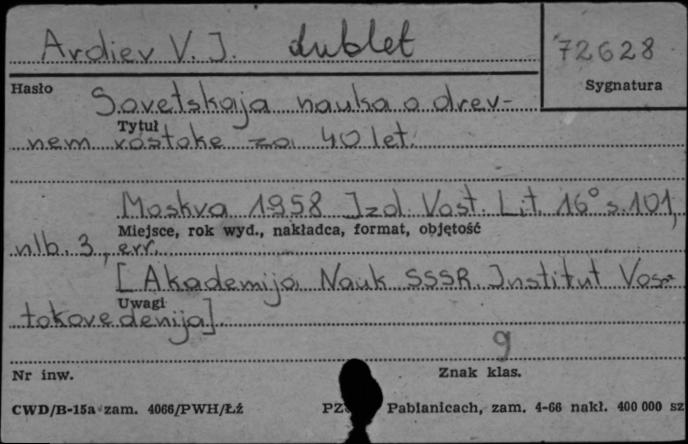 Ardiev V. J. dublet
72628
Hasło
Sygnatura
Sovetskaja nauka o drev-
Tytuł
nem vostoke za 40 let.
Moskva 1958 Izd. Vost. Lit. 16° s. 101,
Miejsce, rok wyd., nakładca, format, objętość
nlb. 3, err.
[Akademija Nauk SSSR. Institut Vos-
Uwagi
tokovedenija].
9
Nr inw.
Znak klas.
CWD/B-15a zam. 4066/PWH/Łź
Pabianicach, zam. 4-66 nakł. 400 000 sz